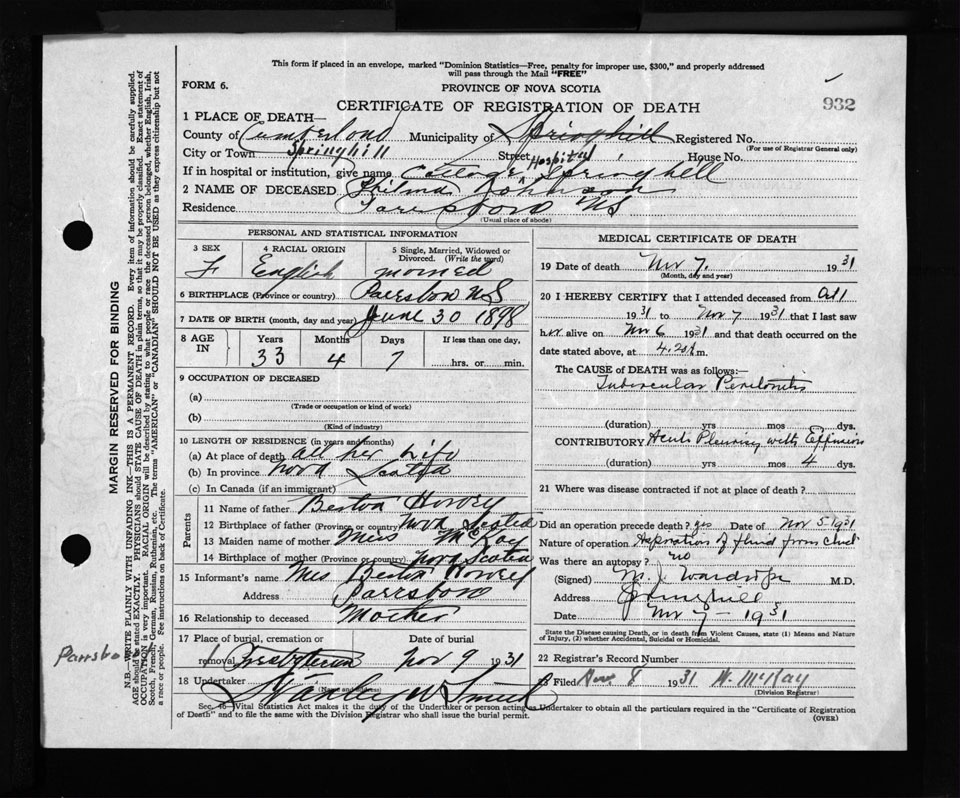 This form if placed in an envelope, marked "Dominion Statistics—Free, penalty for improper use, $300," and properly addressed
will pass through the Mail "FREE"
FORM 6.
PROVINCE OF NOVA SCOTIA
932
CERTIFICATE OF REGISTRATION OF DEATH
1 PLACE OF DEATH—
County of Cumberland Municipality of Springhill Registered No.
(For use of Registrar General only)
City or Town Springhill Street House No.
If in hospital or institution, give name Cottage Hospital Springhill
2 NAME OF DECEASED Johnson
Residence Parrsboro NS
(Usual place of abode)
PERSONAL AND STATISTICAL INFORMATION
3 SEX 4 RACIAL ORIGIN 5 Single, Married, Widowed or Divorced. (Write the word)
F English married
6 BIRTHPLACE (Province or country) Parrsboro NS
7 DATE OF BIRTH (month, day and year) June 30 1898
8 AGE IN Years Months Days If less than one day,
33 4 7 hrs. or min.
9 OCCUPATION OF DECEASED
(a)
(Trade or occupation or kind of work)
(b)
(Kind of industry)
10 LENGTH OF RESIDENCE (in years and months)
(a) At place of death all her life
(b) In province Nova Scotia
(c) In Canada (if an immigrant)
Parents
11 Name of father
12 Birthplace of father (Province or country) Nova Scotia
13 Maiden name of mother Miss McKay
14 Birthplace of mother (Province or country) Nova Scotia
15 Informant's name Mrs
Address Parrsboro
16 Relationship to deceased Mother
17 Place of burial, cremation or removal Date of burial
Presbyterian Nov 9 1931
18 Undertaker Stanley W Smith
MEDICAL CERTIFICATE OF DEATH
19 Date of death Nov 7. 1931
(Month, day and year)
20 I HEREBY CERTIFY that I attended deceased from
1931 to Nov 7 1931 that I last saw
her alive on Nov 6 1931 and that death occurred on the
date stated above, at 4.20 m.
The CAUSE of DEATH was as follows:—
Tubercular Peritonitis
(duration) yrs mos dys.
CONTRIBUTORY Acute Pleurisy with Effusion
(duration) yrs mos 4 dys.
21 Where was disease contracted if not at place of death?
Did an operation precede death? yes Date of Nov 5 1931
Nature of operation Aspiration of fluid from chest
Was there an autopsy? no
(Signed) M. J. Wardrope M.D.
Address Springhill
Date Nov 7 - 1931
State the Disease causing Death, or in death from Violent Causes, state (1) Means and Nature
of Injury, (2) whether Accidental, Suicidal or Homicidal.
22 Registrar's Record Number
23 Filed Nov 8 1931 McKay
(Division Registrar)
Sec. 46—Vital Statistics Act makes it the duty of the Undertaker or person acting as Undertaker to obtain all the particulars required in the "Certificate of Registration
of Death" and to file the same with the Division Registrar who shall issue the burial permit.
(OVER)
MARGIN RESERVED FOR BINDING
N.B.—WRITE PLAINLY WITH UNFADING INK—THIS IS A PERMANENT RECORD. Every item of information should be carefully supplied.
AGE should be stated EXACTLY. PHYSICIANS should STATE CAUSE OF DEATH in plain terms, so that it may be properly classified. Exact statement of
OCCUPATION is very important. RACIAL ORIGIN will be described by stating to what people or race the deceased person belonged, whether English, Irish,
Scotch, French, German, Russian, Ruthenian, etc. The terms "AMERICAN" or "CANADIAN" SHOULD NOT BE USED as they express citizenship but not
a race or people. Fee instructions on back of Certificate.
Parrsboro